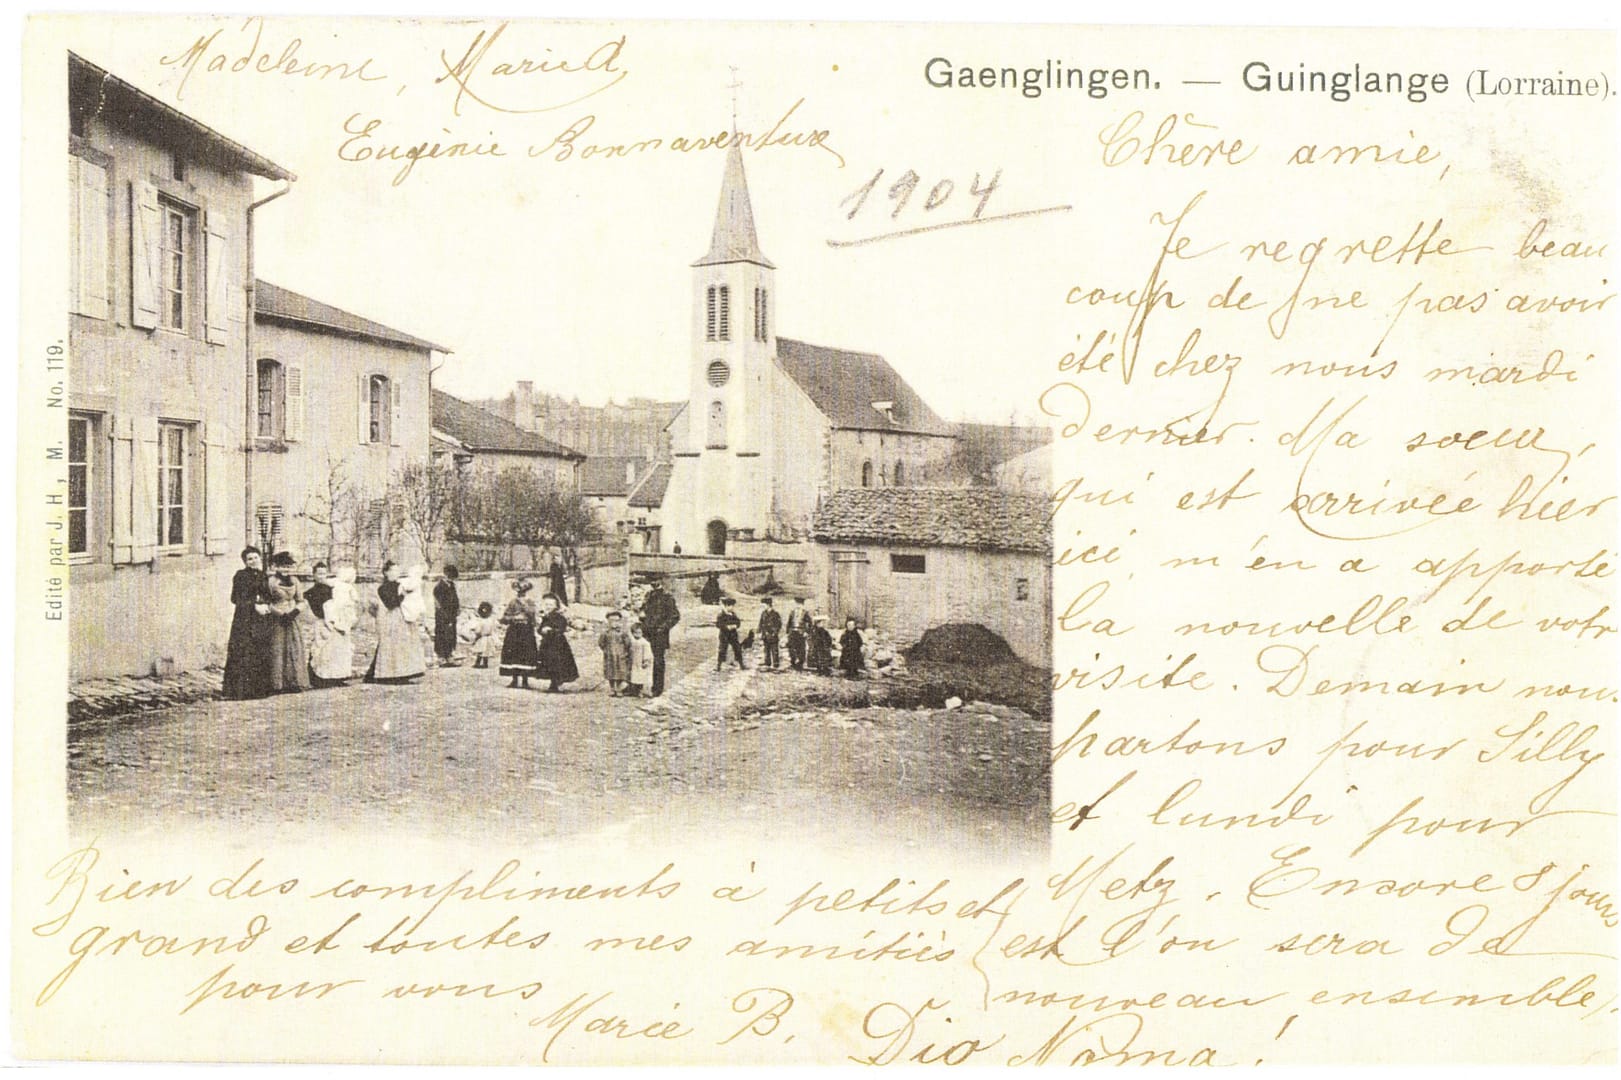 Madeleine, Marie A,
Eugènie Bonnaventure
1904
Gaenglingen. — Guinglange (Lorraine).
Edité par J. H, M. No. 119.
Chère amie,
Je regrette beau
coup de ne pas avoir
été chez nous mardi
dernier. Ma soeur,
qui est arrivée hier
ici m'en a apporté
la nouvelle de votr
visite. Demain nou
partons pour Silly
et lundi pour
Metz. Encore 8 jours
et l'on sera de
nouveau ensemble,
Bien des compliments à petits et
grand et toutes mes amitiés
pour vous
Marie B.
Dio Noma!